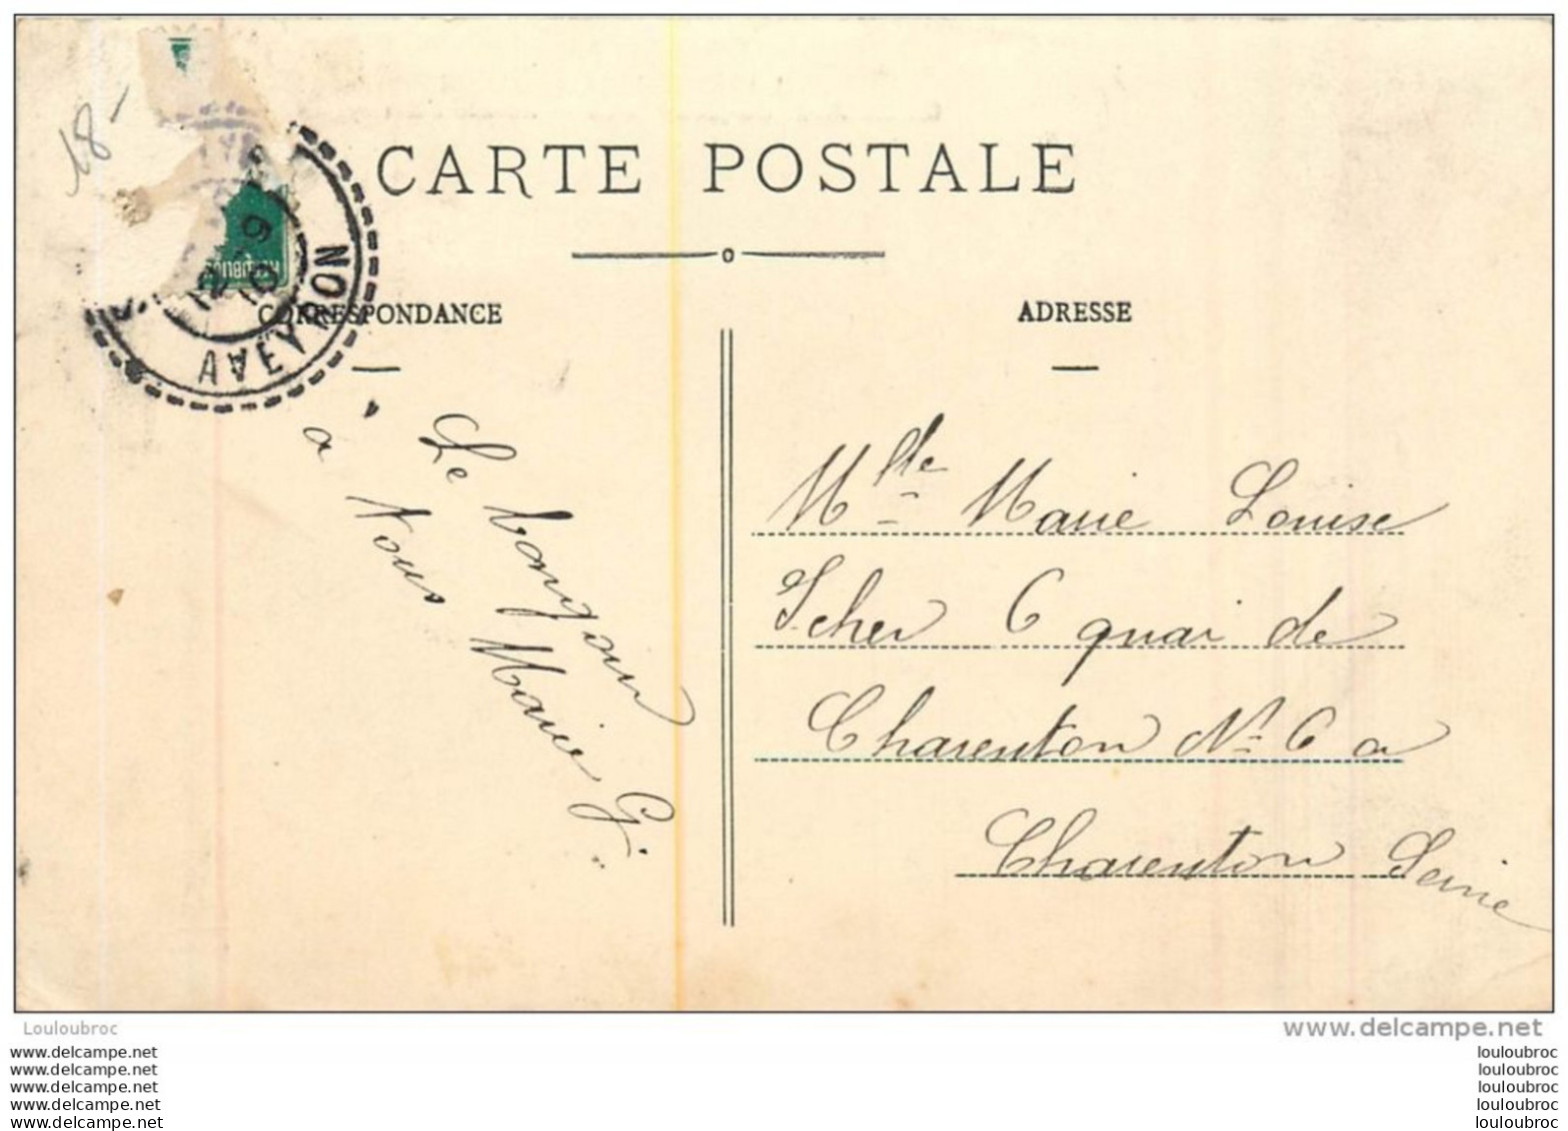 18-
CARTE POSTALE
AVEYRON
CORRESPONDANCE
ADRESSE
Le bonjour
à Vous Marie G.
Mlle Marie Louise
Scher 6 quai de
Charenton No 6 a
Charenton Seine
Louloubroc
www.delcampe.net
www.delcampe.net
www.delcampe.net
www.delcampe.net
www.delcampe.net
www.delcampe.net
louloubroc
louloubroc
louloubroc
louloubroc
louloubroc